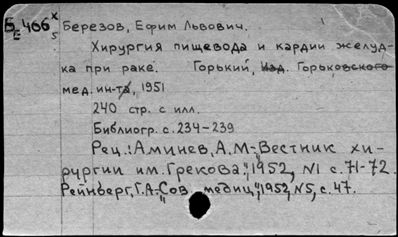 Б 466 х
Е 5
Березов, Ефим Львович.
Хирургия пищевода и кардии желуд-
ка при раке. Горький, Изд. Горьковского
мед. ин-та, 1951
240 стр. с илл.
Библиогр. с. 234-239
Рец.: Аминев, А.М.- "Вестник хи-
рургии им. Грекова", 1952, N1 с. 71-72.
Рейнберг, Г.А.- "Сов. медиц.", 1952, N5, с. 47.